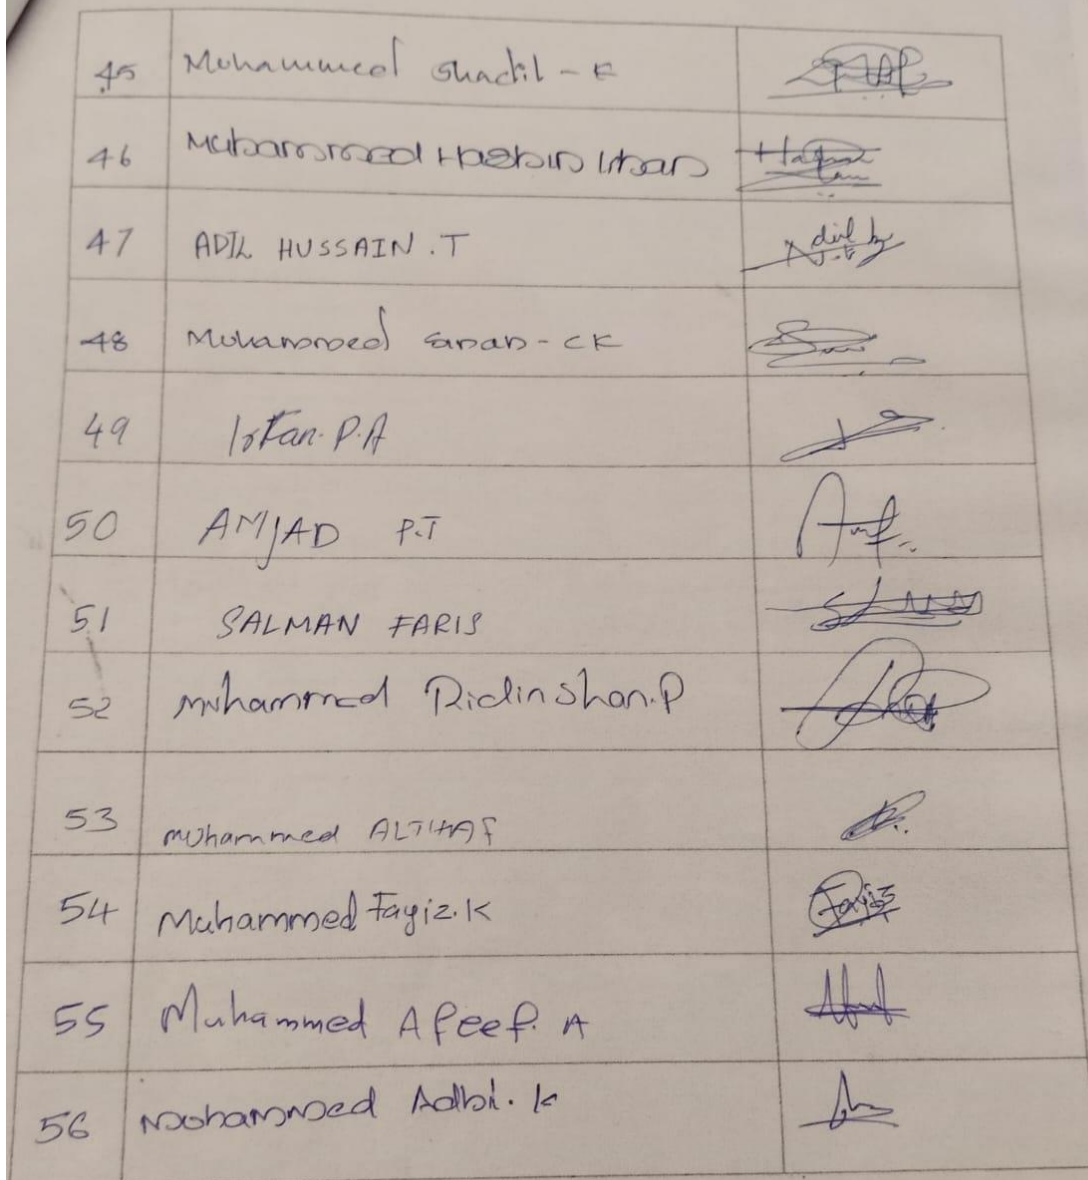 45 Muhammed Shadil - K
46 Muhammed Hashin Irban
47 ADIL HUSSAIN .T
48 Muhammed Sanan - CK
49 Irfan. P.A
50 AMJAD P.T
51 SALMAN FARIS
52 Muhammed Ridinshan.P
53 Muhammed ALTHAF
54 Muhammed Fayiz.K Fayiz
55 Muhammed Afeef. A
56 Mohammed Adbil. K